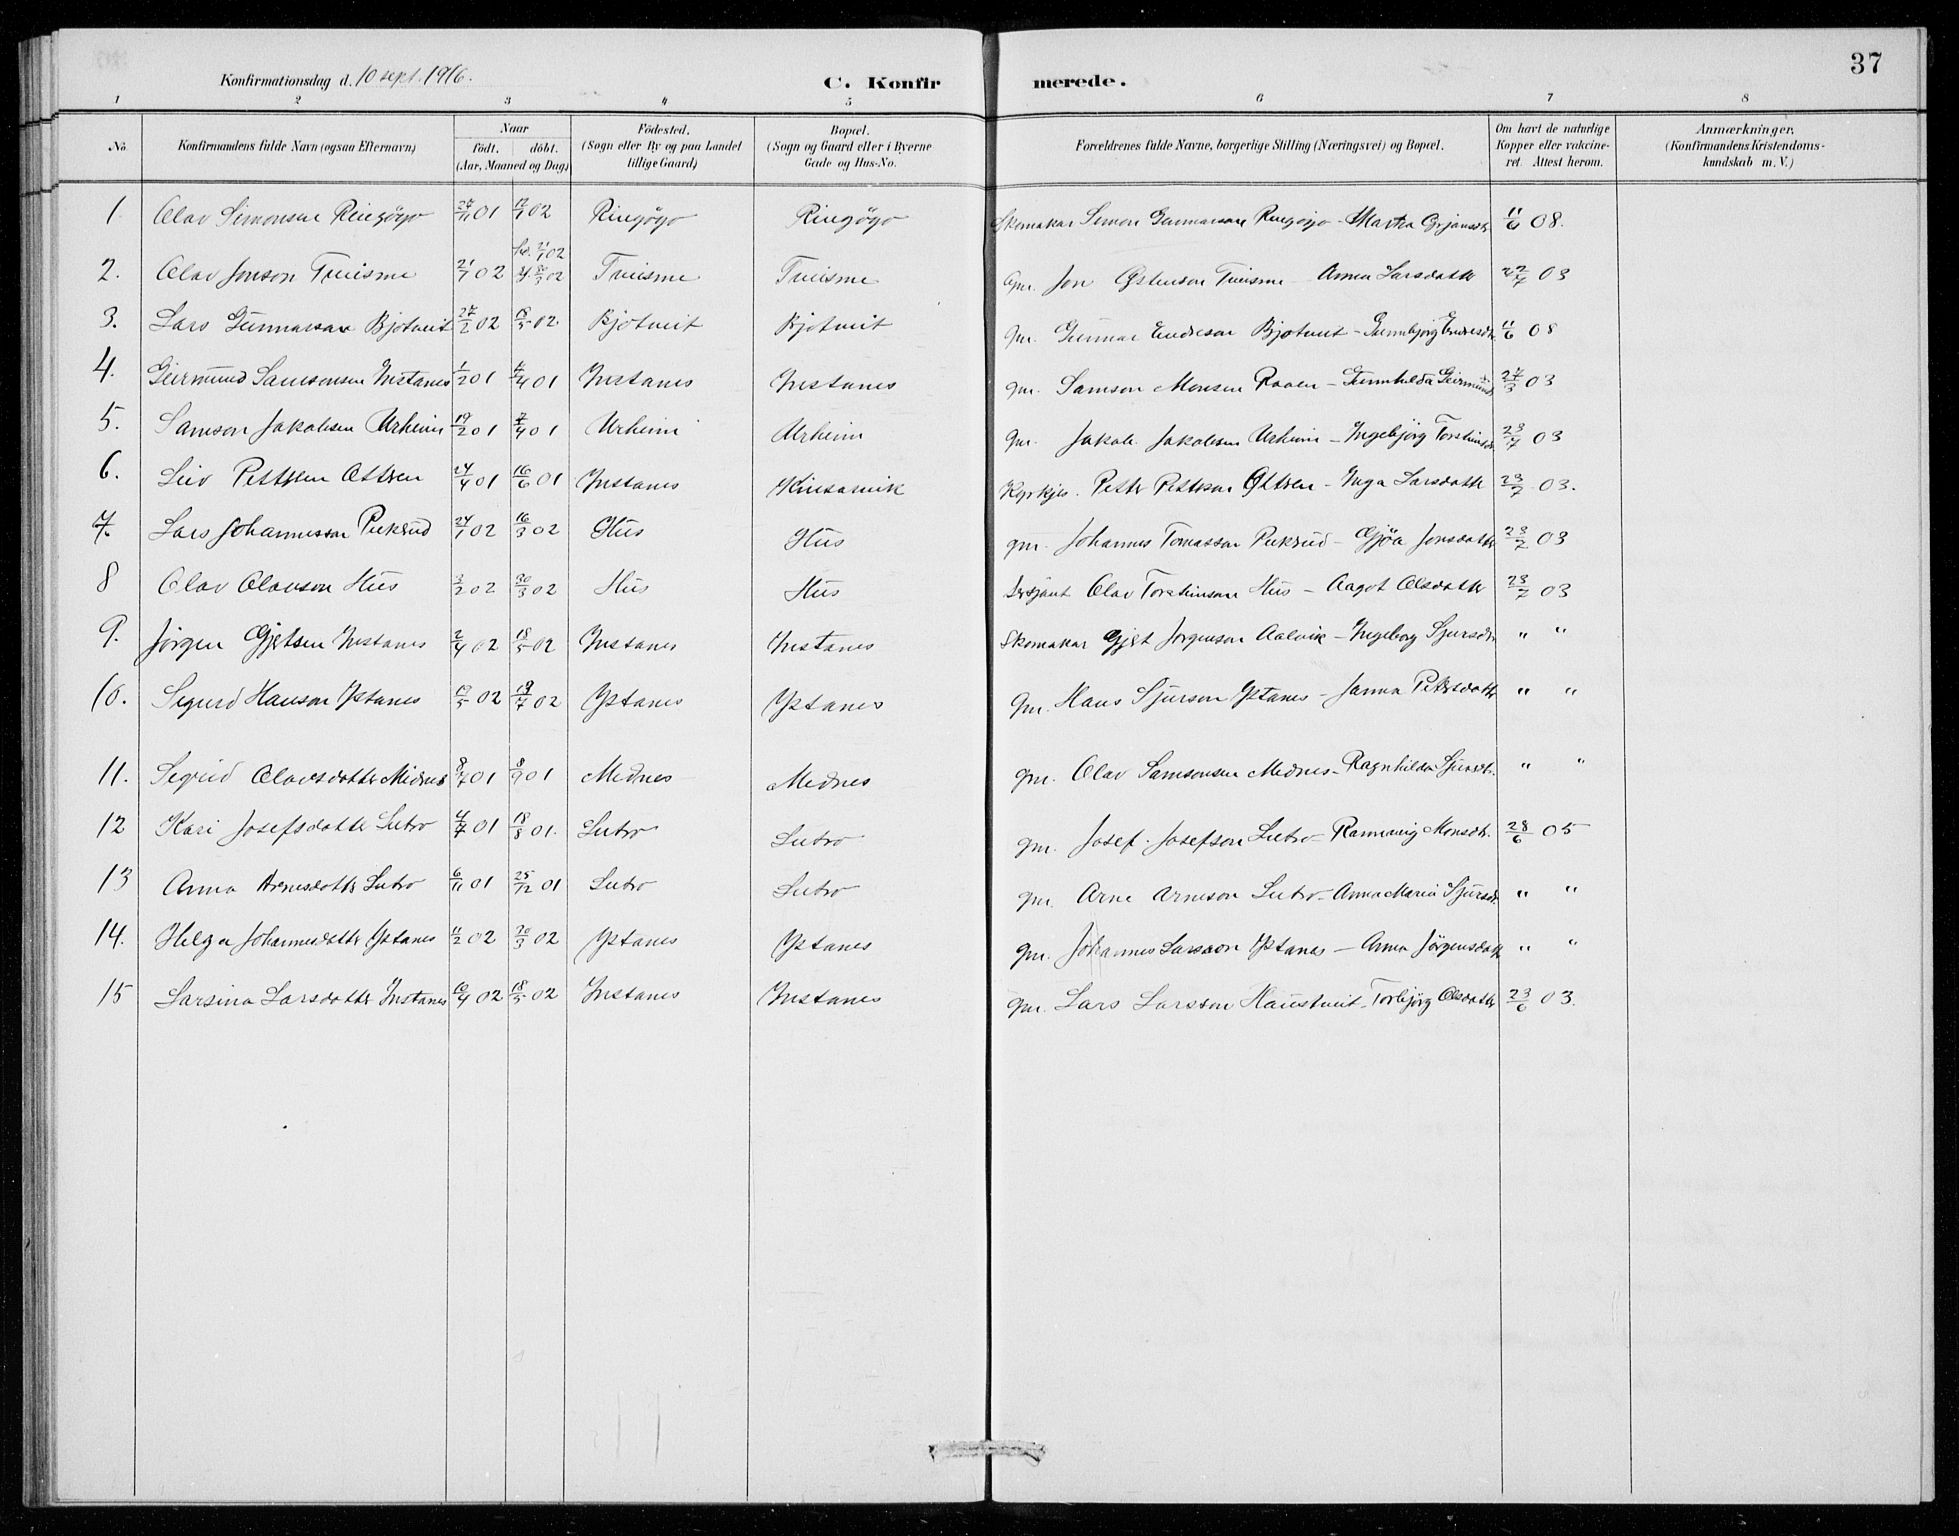 37
Konfirmationsdag d. 10 sept. 1916.
C. Konfir merede.
1 2 3 4 5 6 7 8
No. Konfirmandens fulde Navn (ogsaa Efternavn) Naar født. døbt. (Aar, Maaned og Dag) Fødested. (Sogn eller By og paa Landet tillige Gaard) Bopæl. (Sogn og Gaard eller i Byerne Gade og Hus-No. Forældrenes fulde Navne, borgerlige Stilling (Næringsvei) og Bopæl. Om havt de naturlige Kopper eller vakcineret. Attest herom. Anmærkninger. (Konfirmandens Kristendomskundskab m. V.)
1. Olav Simonsen Ringøgo 01 02 Ringøgo Ringøgo Skomakar Simon Gunnarson Ringøgo - Marta 11/6 08.
2. Olav Jonson Tveisme 21/1 02 21/1 02 30/3 02 Tveisme Tveisme Gm. Jon Østenson Tveisme - Anna Larsdatter 22/7 03
3. Lars Gunnarson Bjotveit 27/2 02 18/5 02. Bjotveit Bjotveit gm. Gunnar Endreson Bjotveit - Gunnbjørg Endresdtr 11/6 08
4. Geirmund Samsonsen Instanes 1/2 01 /4 01 Instanes Instanes gm. Samson Monsen Raaen - Gunnhilda Geirmunds 03
5. Samson Jakobsen Urheim 19/2 01 7/4 01 Urheim Urheim gm. Jakob Jakobsen Urheim - Ingebjørg Torsteinsdr 23/7 03
6. Leiv Pettersen Ottsen 24/4 01 16/6 01 Instanes Kinsarvik Kyrkjes. Petter Pettson Ottsen - Inga Larsdatter 23/7 03.
7. Lars Johannesson Peikrud 24/1 02 16/3 02 Hus Hus gm. Johannes Tomasson Peikrud - Gjøa Jonsdatter 23/7 03
8 Olav Olavson Hus 3/2 02 30/3 02 Hus Hus Sersjant Olav Torsteinson Hus - Aagot Olsdatter 23/7 03
9. Jørgen Gjetsen Instanes 2/4 02 18/5 02 Instanes Instanes Skomakar Gjert Jørgenson Aalvik - Ingeborg Sjursdtr " "
10. Sigurd Hanson Ystanes 19/5 02 19/7 02 Ystanes Ystanes Gm. Hans Sjurson Ystanes - Janna Petersdatter " "
11. Sigrid Olavsdatter Midnes 8/7 01 8/9 01 Midnes Midnes gm. Olav Samsonsen Midnes - Ragnhilda Sjursdt. " "
12 Kari Josefsdatter Lutro 4/7 01 18/8 01. Lutro Lutro gm. Josef. Josefson Lutro - Rannveig Monsdtr. 28/6 05
13 Anna Arnesdatter Lutro 6/11 01 25/12 01 Lutro Lutro gm. Arne Arneson Lutro - Anna Maria Sjursdr. " "
14. Helga Johannesdatter Ystanes 11/2 02 30/3 02 Ystanes Ystanes gm. Johannes Larsson Ystanes - Anna Jørgensdatter " "
15 Larsina Larsdatter Instanes 10/4 02 18/5 02 Instanes Instanes gm. Lars Larsson Haustveit - Torbjørg Olsdatter 23/6 03.